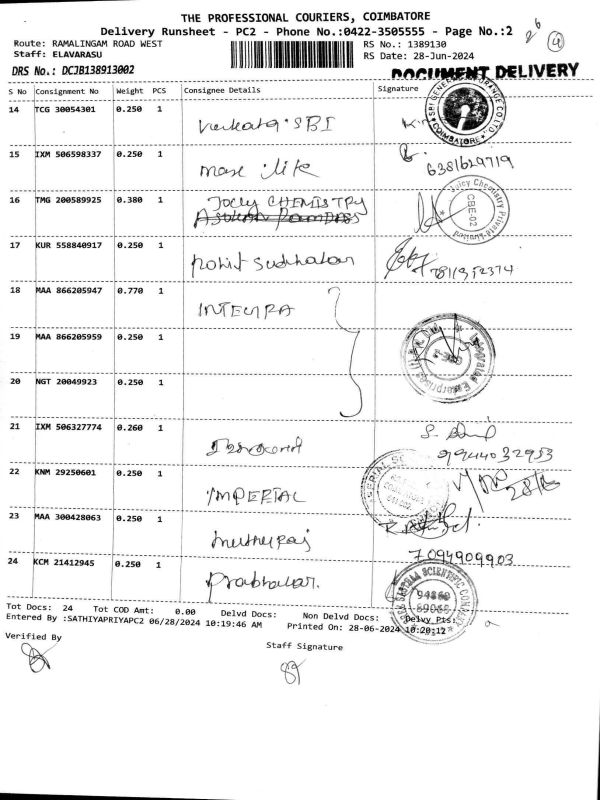 THE PROFESSIONAL COURIERS, COIMBATORE
Delivery Runsheet - PC2 - Phone No.:0422-3505555 - Page No.:2
Route: RAMALINGAM ROAD WEST RS No.: 1389130
Staff: ELAVARASU RS Date: 28-Jun-2024
DRS No.: DCJB138913002 DOCUMENT DELIVERY
S No Consignment No Weight PCS Consignee Details Signature
14 TCG 30054301 0.250 1 Venkata. SBI
15 IXM 506598337 0.250 1
6381629719
16 TMG 200589925 0.380 1 CHEMISTRY
Juicy Chemistry Private Limited CBE-02
17 KUR 558840917 0.250 1 Rohit Sudhakar
18 MAA 866205947 0.770 1 INTEGRA
19 MAA 866205959 0.250 1
20 NGT 20049923 0.250 1
21 IXM 506327774 0.260 1
9944032953
22 KNM 29250601 0.250 1 IMPERIAL
23 MAA 300428063 0.250 1 Muthuraj
7094909903
24 KCM 21412945 0.250 1 Prabhakar.
Tot Docs: 24 Tot COD Amt: 0.00 Delvd Docs: Non Delvd Docs: Delvy Pts:
Entered By :SATHIYAPRIYAPC2 06/28/2024 10:19:46 AM Printed On: 28-06-2024 10:20:12
Verified By Staff Signature